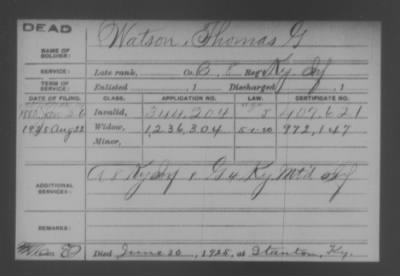 DEAD
Watson, Thomas G
NAME OF SOLDIER:
SERVICE: Late rank, Co. B, 8 Reg't Ky. Inf
TERM OF SERVICE: Enlisted , 1 Discharged , 1
DATE OF FILING. CLASS. APPLICATION NO. LAW. CERTIFICATE NO.
1880 Jan 26 Invalid, 344,204 407,621
1928 Aug 22 Widow, 1,236,304 5-1-20 972,147
Minor,
ADDITIONAL SERVICES: A 8 Ky Inf & G 4 Ky Mt'd Inf
REMARKS:
Died June 30, 1928, at Stanton, Ky.